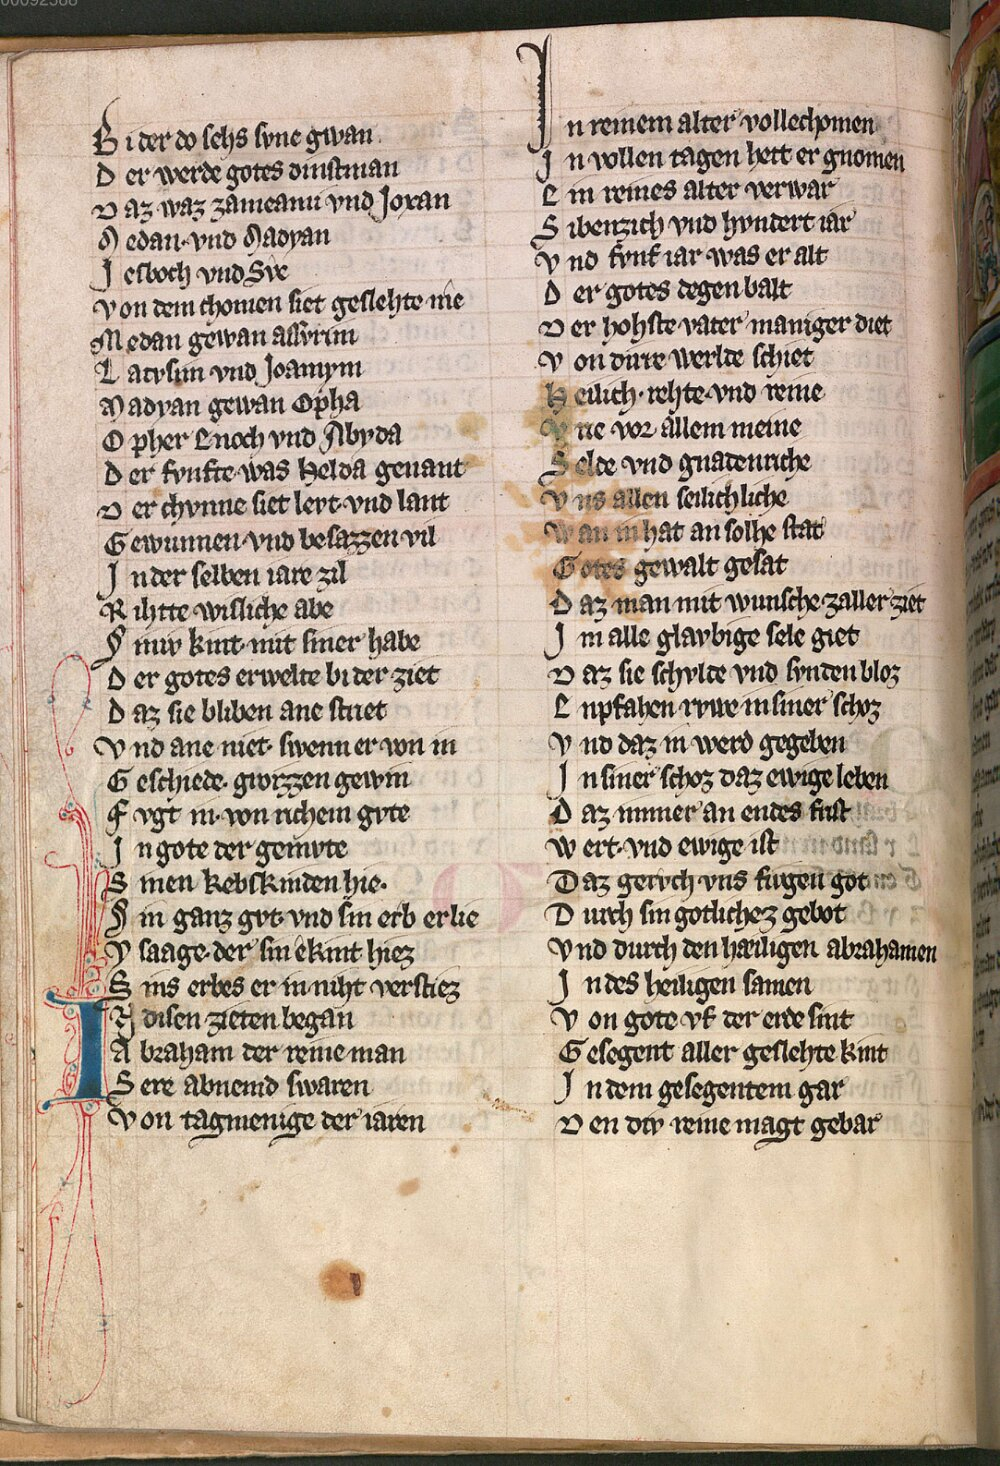 00092588
Bi der do sehs syne gwan
Der werde gotes dinstman
Daz waz zameanu vnd Joxan
Medan vnd Madyan
Jesboch vnd Sve
Von dem chomen siet geslehte me
Medan gewan assvrim
Latvsim vnd Joamym
Madyan gewan Opha
Opher Enoch vnd Abyda
Der fvnfte was Helda genant
Der chvnne siet levt vnd lant
Gewunnen vnd besazzen vil
In der selben iare zil
Rihtte wisliche abe
Siniv kint mit siner habe
Der gotes erwelte bi der ziet
Daz sie bliben ane striet
Vnd ane niet swenn er von in
Geschiede. grozzen gewin
Fvgt in von richem gvte
In gote der gemvte
Sinen kebskinden hie.
Sin ganz gvt vnd sin erb er lie
Ysaage der sin ekint hiez
Sins erbes er in niht verstiez
IN disen zieten began
Abraham der reine man
Sere abnemd swaren
Von tagmenige der iaren
In reinem alter vollechomen
In vollen tagen hett er gnomen
Ein reines alter verwar
Sibenzich vnd hvndert iar
Vnd fvnf iar was er alt
Der gotes degen balt
Der hohste vater maniger diet
Von dirre werlde schiet
Heilich rehte vnd reine
Vne vor allem meine
Selde vnd gnadenriche
Vns allen seilichliche
Wan in hat an solhe stat
Gotes gewalt gesat
Daz man mit wunsche zaller ziet
Im alle glavbige sele giet
Daz sie schvlde vnd svnden bloz
Enpfahen rvwe in siner schoz
Vnd daz in werd gegeben
In siner schoz daz ewige leben
Daz nimer an endes frist
Wert vnd ewige ist
Daz gervch vns fugen got
Durch sin gotlichez gebot
Vnd durch den hæiligen abrahamen
In des heiligen samen
Von gote vf der erde sint
Gesegent aller geslehte kint
In dem gesegentem gar
Den div reine magt gebar